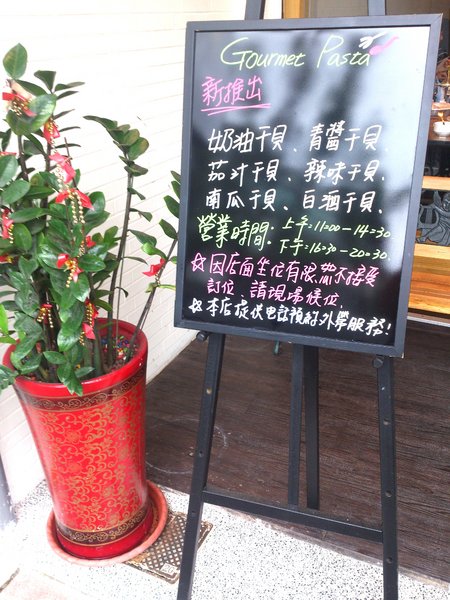 Gourmet Pasta
新推出
奶油干貝、青醬干貝、
茄汁干貝、辣味干貝、
南瓜干貝、白酒干貝、
營業時間: 上午=11:00-14=30
下午=16=30-20=30.
☆因店面坐位有限，故不接受
訂位，請現場候位.
☆本店提供電話預約外帶服務!